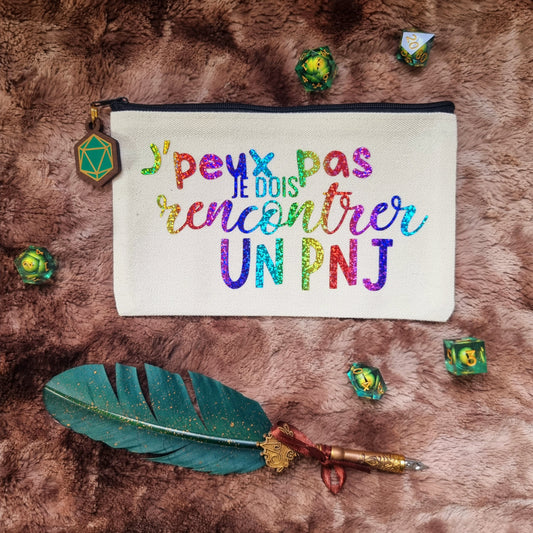 J'peux pas
JE DOIS
rencontrer
UN PNJ